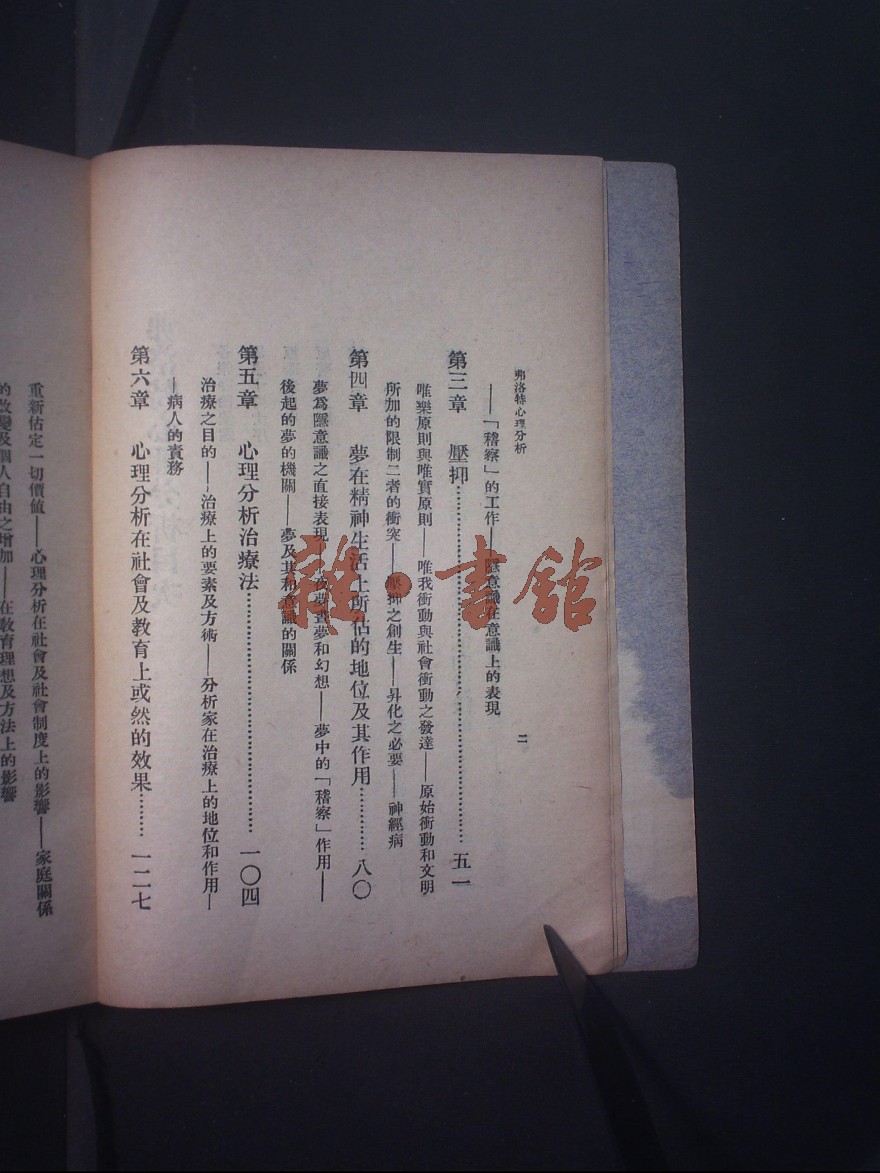 弗洛特心理分析
二
——「稽察」的工作——隱意識在意識上的表現
第三章 壓抑……五一
唯樂原則與唯實原則——唯我衝動與社會衝動之發達——原始衝動和文明
所加的限制二者的衝突——壓抑之創生——昇化之必要——神經病
第四章 夢在精神生活上所佔的地位及其作用……八〇
夢爲隱意識之直接表現——夜夢晝夢和幻想——夢中的「稽察」作用——
後起的夢的機關——夢及其和意識的關係
第五章 心理分析治療法……一〇四
治療之目的——治療上的要素及方術——分析家在治療上的地位和作用—
—病人的責務
第六章 心理分析在社會及教育上或然的效果……一二七
重新估定一切價値——心理分析在社會及社會制度上的影響——家庭關係
的改變及個人自由之增加——在教育理想及方法上的影響
雜·書館